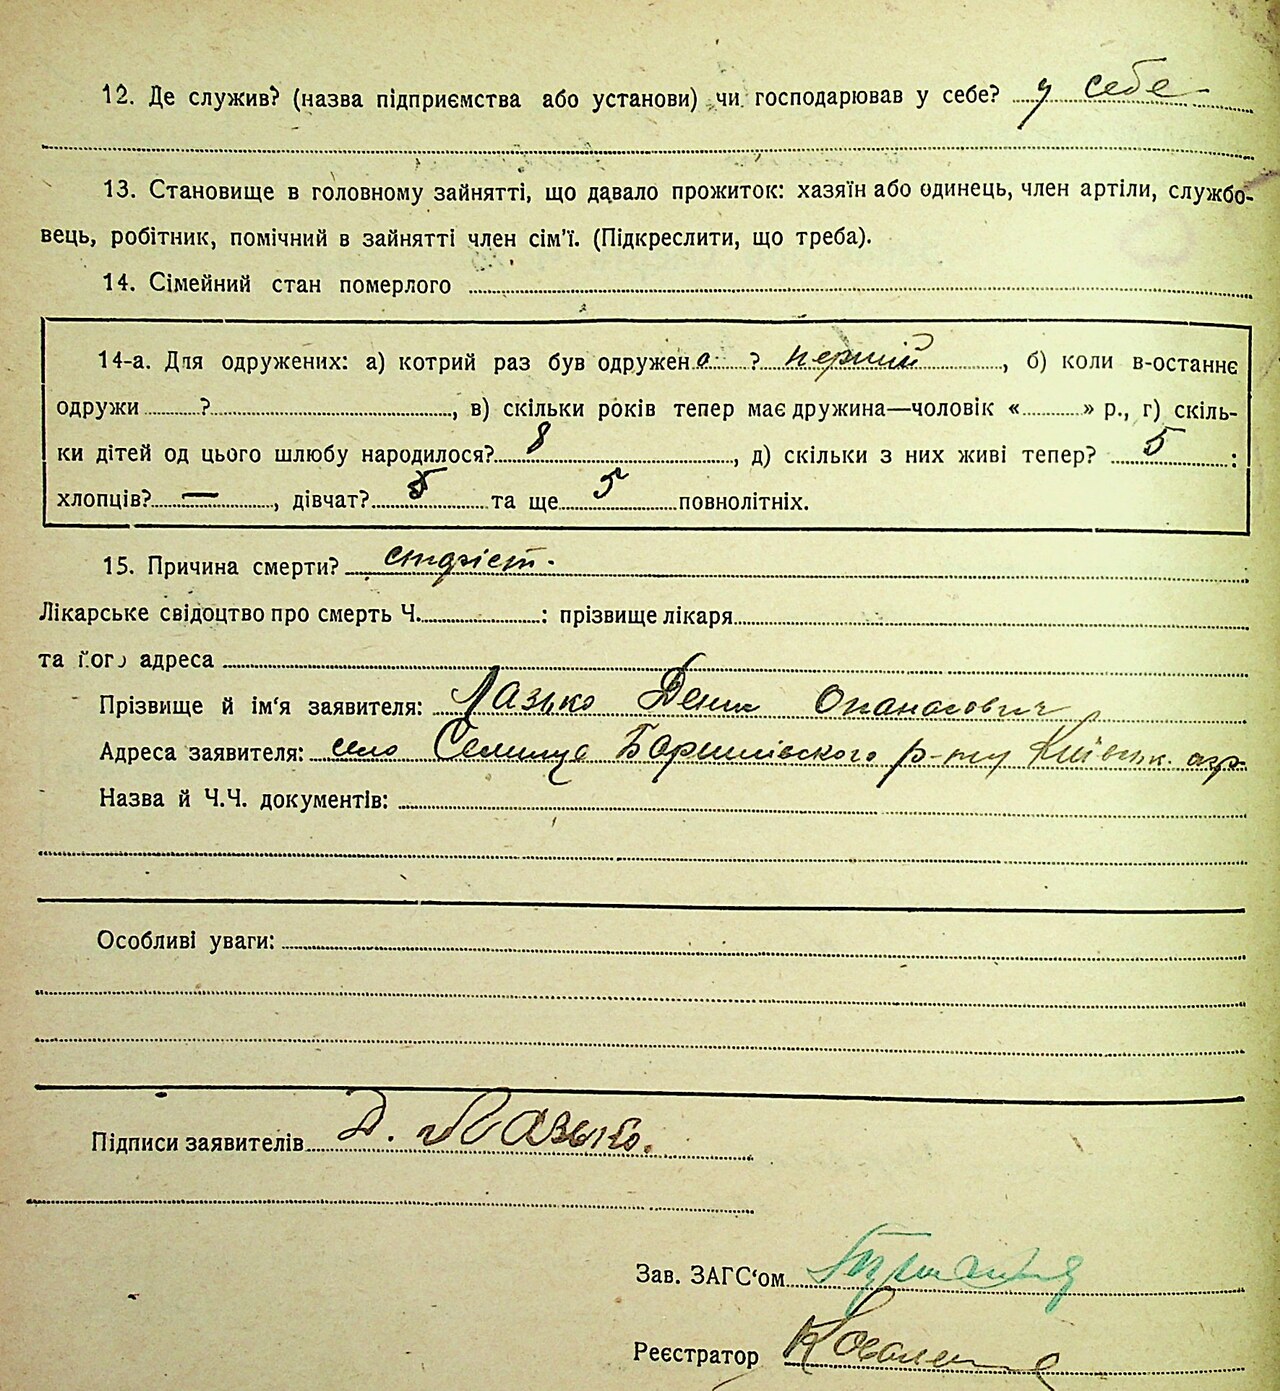 12. Де служив? (назва підприємства або установи) чи господарював у себе? у себе
13. Становище в головному зайнятті, що давало прожиток: хазяїн або одинець, член артіли, службо-
вець, робітник, помічний в зайнятті член сім'ї. (Підкреслити, що треба).
14. Сімейний стан померлого
14-а. Для одружених: а) котрий раз був одружена ? першій, б) коли в-останнє
одружи ?, в) скільки років тепер має дружина—чоловік « » р., г) скіль-
ки дітей од цього шлюбу народилося? 8, д) скільки з них живі тепер? 5 :
хлопців? —, дівчат? 5 та ще 5 повнолітніх.
15. Причина смерти?
Лікарське свідоцтво про смерть Ч. : прізвище лікаря
та його адреса
Прізвище й ім'я заявителя: Лазько Денис Опанасович
Адреса заявителя: село Селище Баришівського р-ну Київськ. окр.
Назва й Ч.Ч. документів:
Особливі уваги:
Підписи заявителів Д. Лазько.
Зав. ЗАГС'ом
Реєстратор